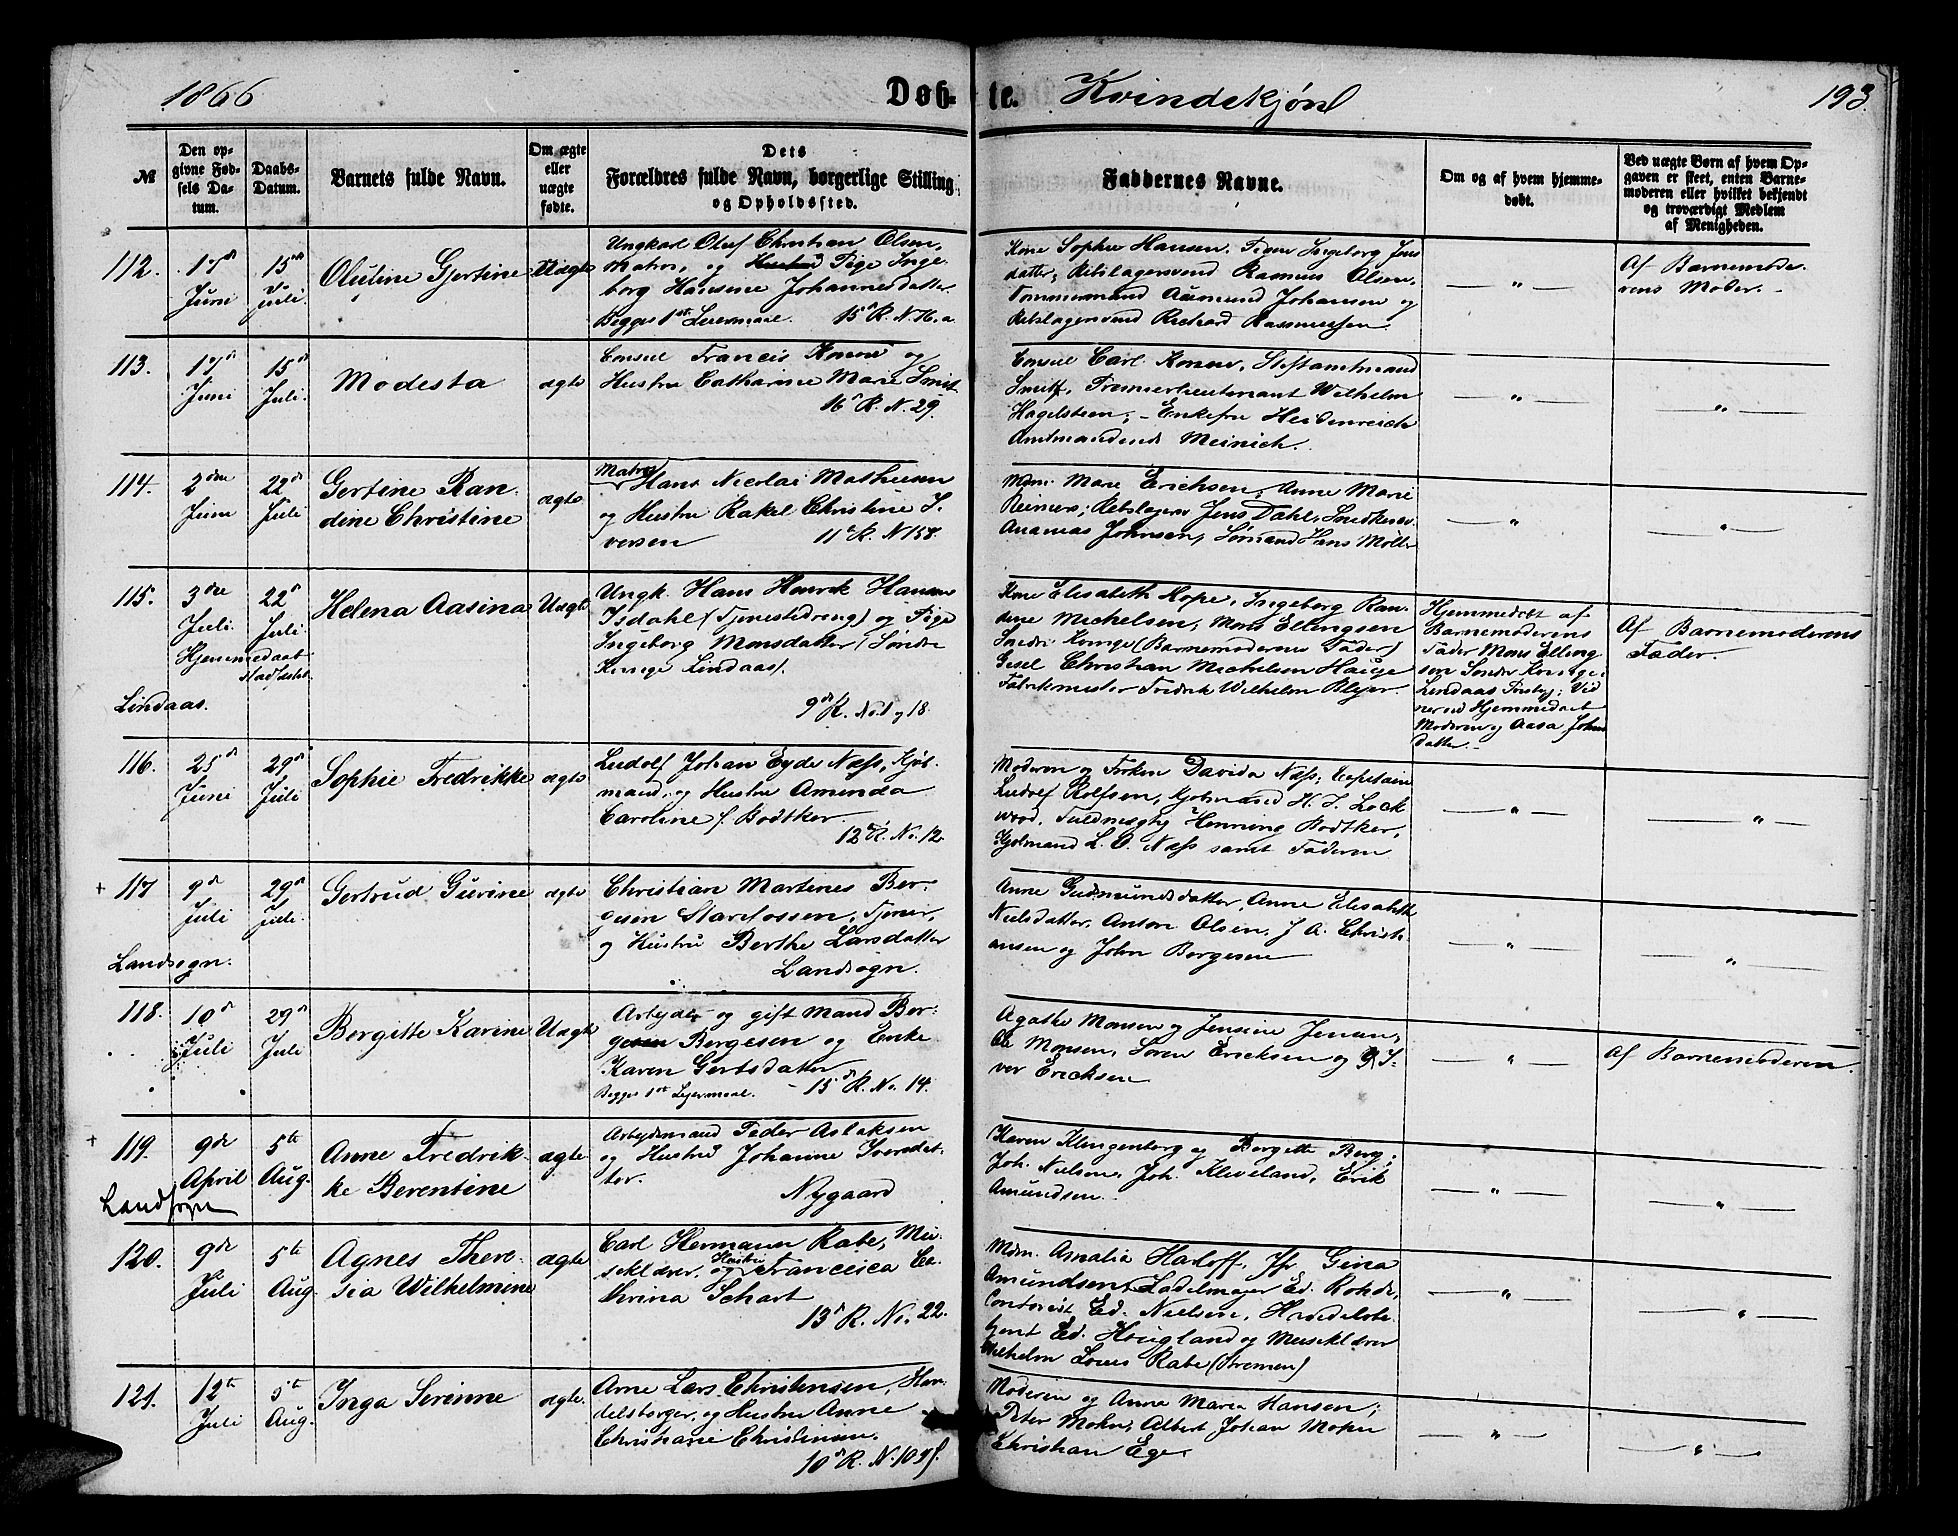 1866
Døbte. Kvindekjøn
193.
№
Den opgivne Fødsels Datum.
Daabs-Datum.
Barnets fulde Navn.
Om ægte eller uægte fødte.
Dets Forældres fulde Navn, borgerlige Stilling og Opholdssted.
Faddernes Navne.
Om og af hvem hjemmedøbt.
Ved uægte Børn af hvem Opgaven er skeet, enten Barnemoderen eller hvilket bekjendt og troværdigt Medlem af Menigheden.
112.
17de Juni
15de Juli.
Olutine Gjertine
Uægte
Ungkarl Oluf Christian Olsen,
Matros, og Hustru Pige Inge-
borg Hansine Johannesdatter
Begges 1ste Leiermaal. 15 R. N. 76. a
Kone Sophie Hansen, Pigen Ingeborg Jens
datter; Rebslagersvend Rasmus Olsen,
Tømmermand Aamund Johansen og
Rebslagersvend Richard Rasmussen
— " —
Af Barnemode-
rens Moder.
113.
17de Juni
15de Juli.
Modesta
ægte
Consul Francis Konow og
Hustru Catharine Marie Smit
16 R. N. 29.
Consul Carl Konow, Stiftamtmand
Smitt, Premierlieutenant Wilhelm
Hagelsteen; Enkefru Heidenreich
Amtmandinde Meinich.
— " —
— " —
114.
2den Juni
22de Juli
Gertine Ran-
dine Christine
ægte
Matros
Hans Nicolai Mathiesen
og Hustru Rakel Christine I-
versen 11 R. N 158.
Mdm. Marie Erichsen, Anne Marie
Reiners; Rebslager Jens Dahl, Snedkersv.
Ananias Johnsen, Sømand Hans Møller
— " —
— " —
115.
3die Juli.
Hjemmedaabt
Stadfæstet
22de Juli
Lindaas.
Helena Aasina
Uægte
Ungk. Hans Henrik Hansen
Isdahl (Tjenestedreng) og Pige
Ingeborg Monsdatter (Søndre
Kvinge Lindaas).
9de R. No. 1 og 18.
Kone Elisabeth Hope, Ingeborg Ran-
dine Michelsen; Mons Ellingsen
Søndre Kvinge (Barnemoderens Fader)
Gesel Christian Michelsen Hauge
Fabrikmester Fredrik Wilhelm Blyer.
Hjemmedøbt af
Barnemoderens
Fader Mons Elling
sen Søndre Kvinge,
Lindaas Præstgj; Vid
ner ved Hjemmedaab
Moderen og Aasa Johns
datter.
Af Barnemoderens
Fader.
116.
25de Juni
29de Juli
Sophie Fredrikke
ægte
Ludolf Johan Eyde Næss, Kjøb-
mand, og Hustru Amanda
Caroline f. Bødtker.
12 R. No. 12
Moderen og Frøken Davida Næss; Capitain
Ludolf Rolfsen, Kjøbmand H. I. Lock
wood, Fuldmægtig Henning Bødtker,
Kjøbmand L. O. Næss samt Faderen
— " —
— " —
+ 117
9de Juli
29de Juli.
Landsogn.
Gertrud Gurine
ægte
Christian Martines Bør-
gesen Starefossen, Tjener,
og Hustru Berthe Larsdatter
Landsogn.
Anne Gudmundsdatter, Anne Elisabeth
Nielsdatter, Anton Olsen, J. A. Christi-
ansen og John Børgesen
— " —
— " —
118.
10de Juli
29de Juli
Børgitte Karine
Uægte
Arbeider og gift Mand Bør-
gesen Børgesen og Enke
Karen Gertsdatter
Begges 1ste Lejermaal. — 15de R. No. 14.
Agathe Monsen og Jensine Jensen,
Ole Monsen, Søren Ericksen og I-
ver Ericksen
— " —
Af Barnemoderen.
+ 119.
9de April
5te Aug.
Landsogn
Anne Fredrik-
ke Berentine
ægte
Arbeidsmand Peder Aslaksen
og Hustru Johanne Iversdat-
ter. Nygaard
Karen Klingenberg og Børgitte Berg;
Joh. Nielsen, Joh. Kleveland, Erik
Amundsen.
— " —
— " —
120.
9de Juli
5te Aug.
Agnes There-
sia Wilhelmine
ægte
Carl Hermann Rabe, Mu-
siklærer, og Hustru Francisca Ca-
thrina Schart
13de R. No. 22.
Mdm. Amalia Harloff, Jfr Gina
Amundsen, Sadelmager Ed. Rohde,
Contorist Ed. Nielsen, Handelsbe-
tjent Ed. Hougland og Musiklærer
Wilhelm Louis Rabe (Bremen)
— " —
— " —
121.
12te Juli
5te Aug.
Inga Serinne
ægte.
Arne Lars Christensen, Han-
delsborger, og Hustru Anne
Christiane Christensen.
10de R. N. 10
Moderen og Anna Maria Hansen;
Peter Mohn, Albert Johan Mohn
Christian Ege.
— " —
— " —